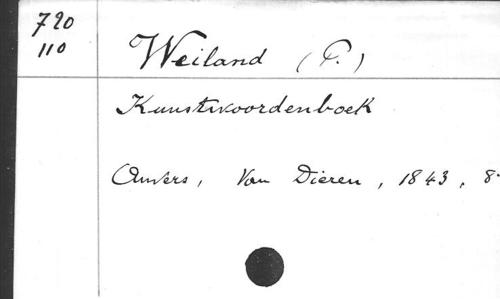 720
110
Weiland (P.)
Kunstwoordenboek
Anvers, Van Dieren, 1843, 8